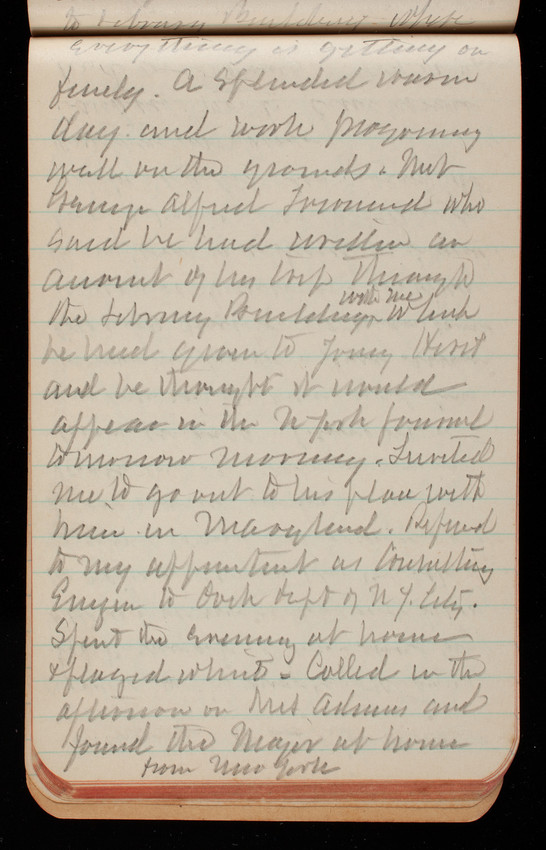 to Library Building where
everything is getting on
finely. A splended warm
day and work progressing
well on the grounds. Met
George Alfred Townsend who
said he had written an
account of his trip through
the Library Building with me which
he had given to
and he thought it would
appear in the N York Journal
tomorrow morning. Invited
me to go out to his place with
him in Maryland. Refered
to my appointment as Consulting
Engin to Dock Dept of N.Y. City.
Spent the evening at home
& played whist. Called in the
afternoon on Mrs Adams and
found the Major at home
from New York